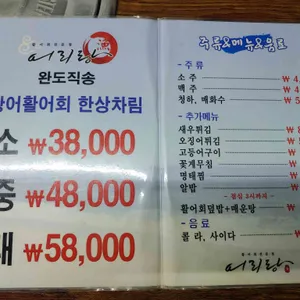 어리랑
완도직송
광어활어회 한상차림
소 ₩38,000
중 ₩48,000
대 ₩58,000
주류&메뉴&음료
- 주 류
소 주
맥 주
청하, 매화수
- 추가메뉴
새우튀김
오징어튀김
고등어구이
꽃게무침
명태찜
알밥
- 점심 2시까지
활어회덮밥+매운탕
- 음 료
콜 라, 사이다
어리랑